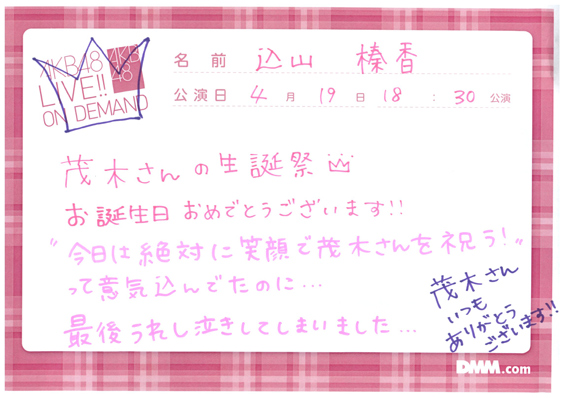 AKB48
LIVE!!
ON DEMAND
AKB
48
名前 込山 榛香
公演日 4月19日 18:30公演
茂木さんの生誕祭
お誕生日おめでとうございます!!
"今日は絶対に笑顔で茂木さんを祝う!"
って意気込んでたのに…
最後うれし泣きしてしまいました…
茂木さん
いつも
ありがとう
ございます!!
DMM.com